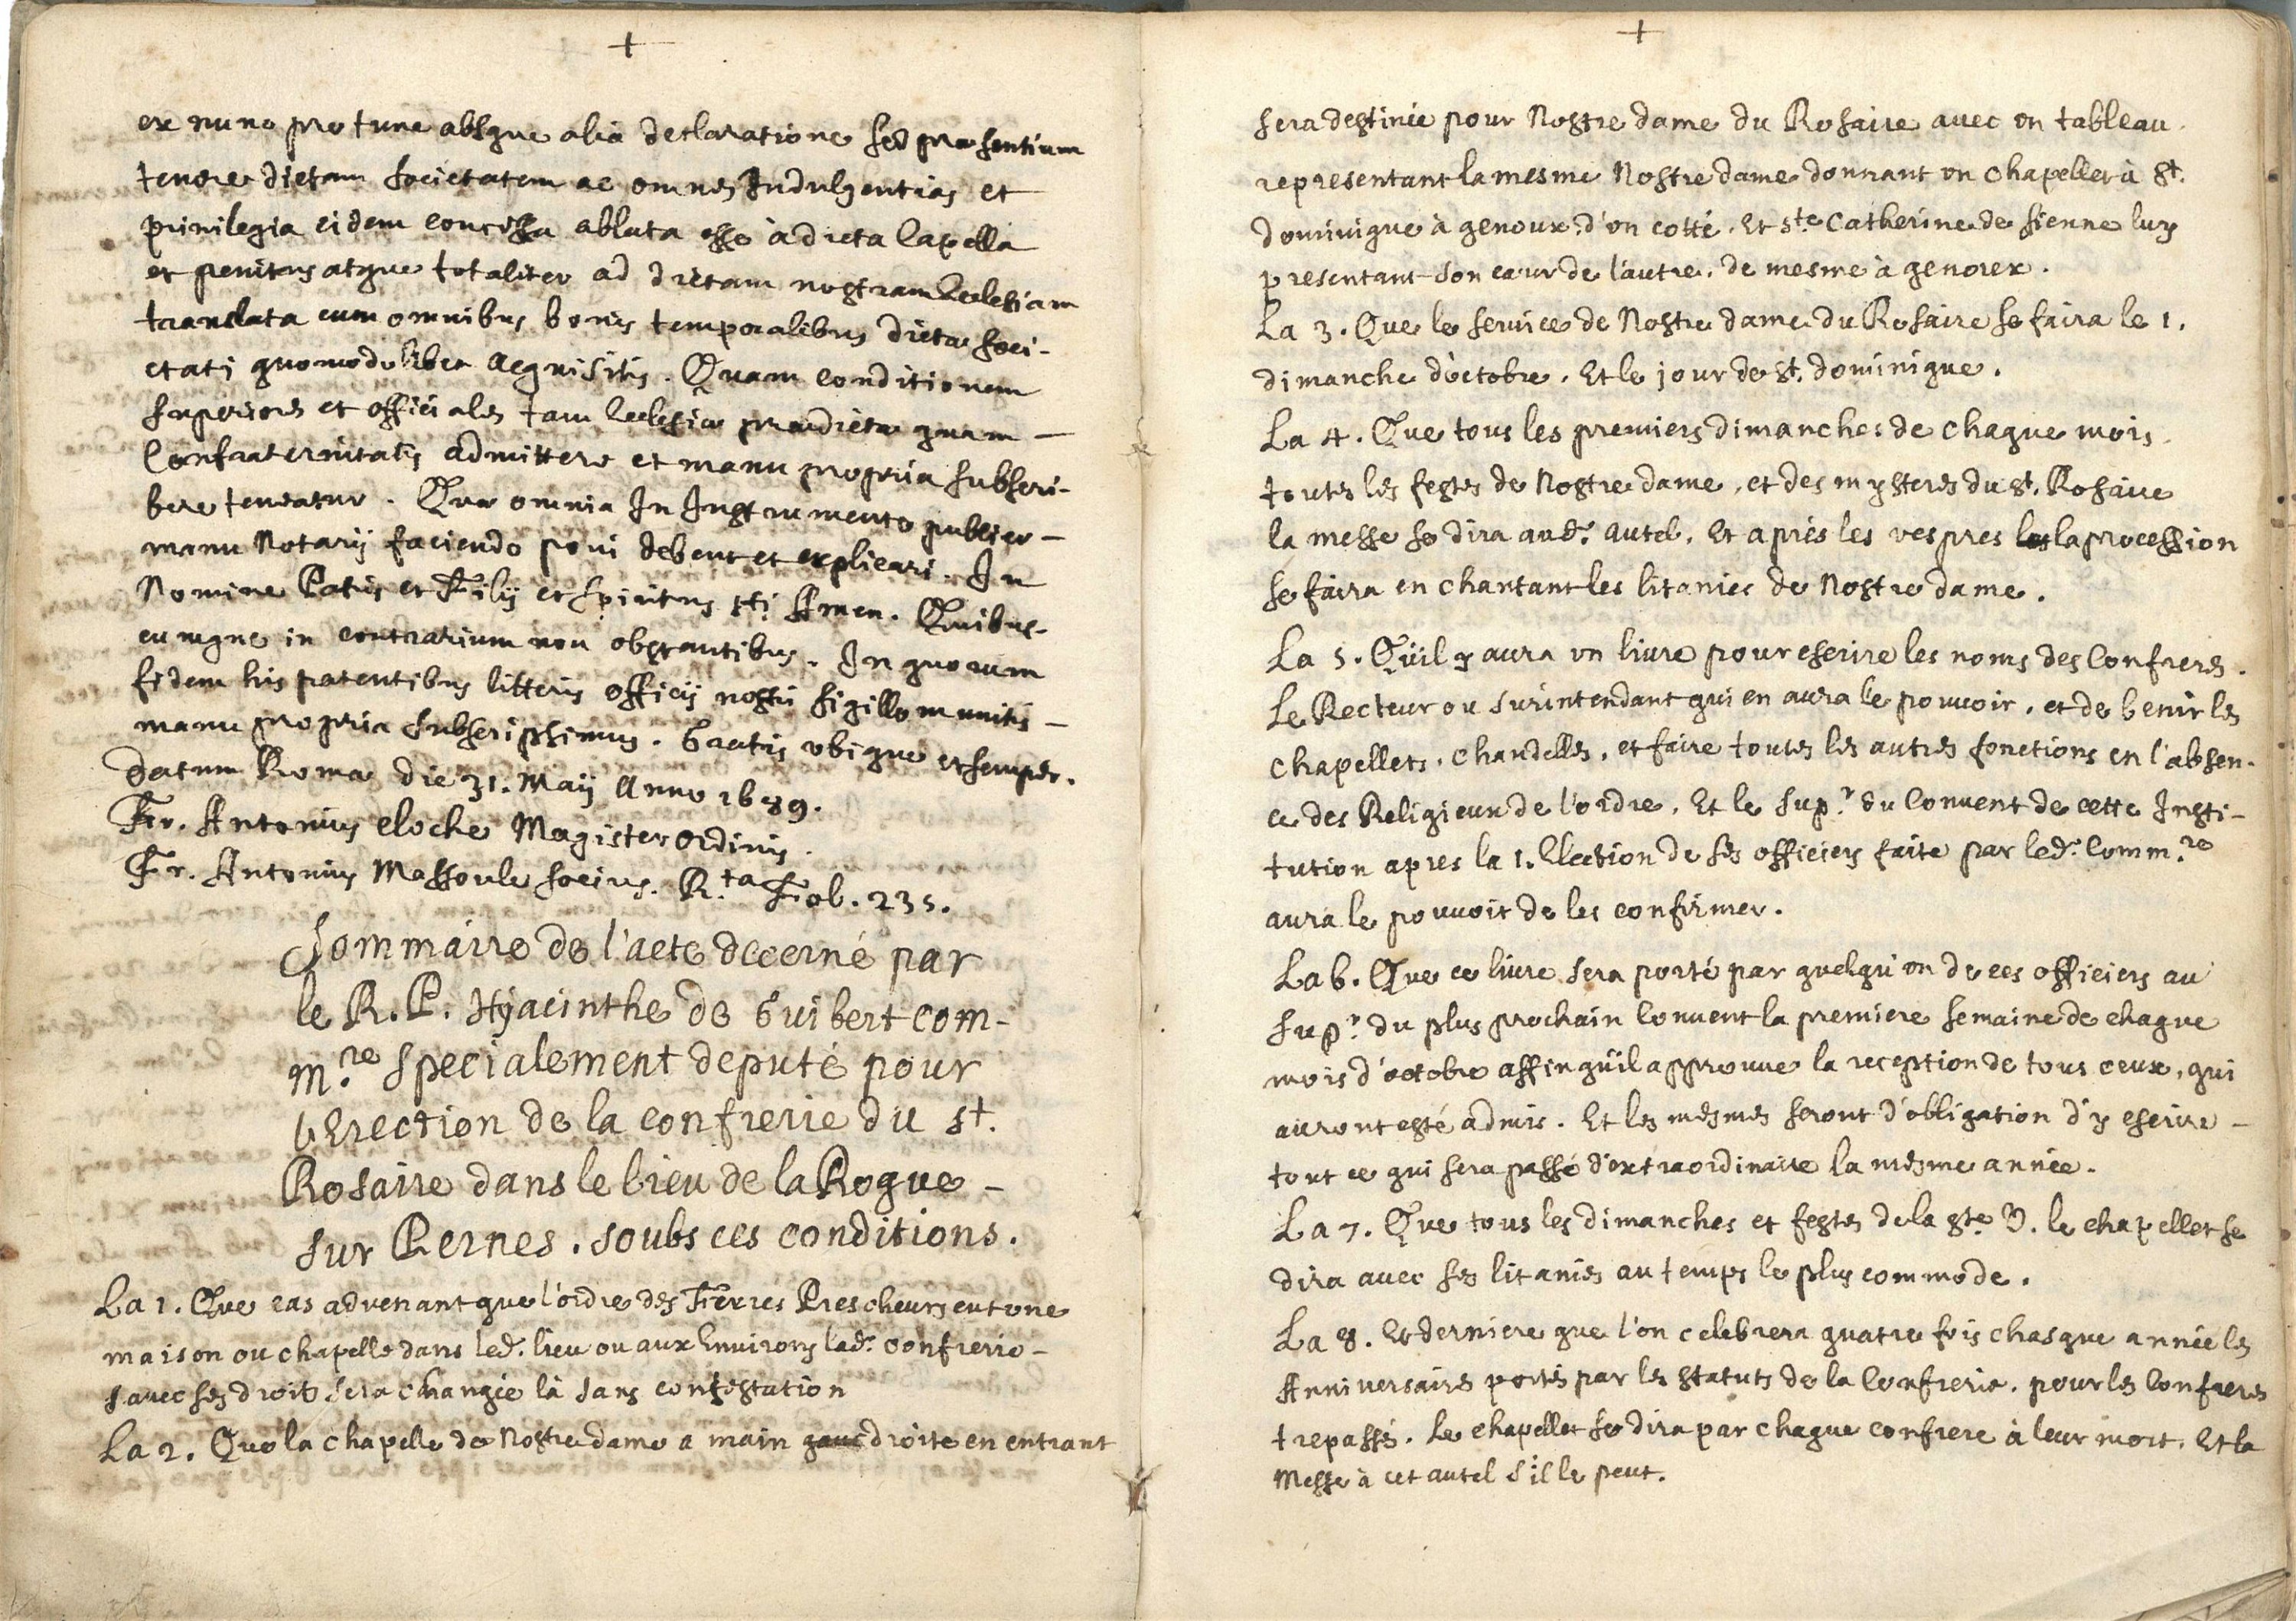 +
ex nunc pro tunc absque alia declaratione sed præsentium
tenore dictam societatem ac omnes Indulgentias et
privilegia eidem concessa ablata esse à dicta Capella
et penitus atque totaliter ad dictam nostram Ecclesiam
translata cum omnibus bonis temporalibus dictæ soci-
etati quomodolibet acquisitis. Quam conditionem
superiores et officiales tam Ecclesiæ prædictæ quam –
Confraternitatis admittere et manu propria subscri-
bere teneatur. Quæ omnia In Instrumento publico –
manu Notarij faciendo poni debent et explicari. In
Nomine Patris et Filij et Spiritus sti Amen. Quibus-
cumque in contrarium non obstantibus. In quorum
fidem his patentibus litteris officij nostri sigillo munitis –
manu propria subscripsimus. Gratis ubique et semper.
Datum Romæ die 31. Maij Anno 1689.
Fr. Antonius cloche Magister ordinis.
Fr. Antonius Massoulie socius. R.ta Fol. 235.
Sommaire de l'acte decerné par
le R. P. Hyacinthe de Guibert com-
m.re specialement deputé pour
l'Erection de la confrerie du st.
Rosaire dans le lieu de la Roque –
sur Pernes. soubs ces conditions.
La 1. Que cas advenant que l'ordre des Freres Prescheurs eut une
maison ou chapelle dans led. lieu ou aux Environs lad. confrerie –
avec ses droits sera changée là sans contestation
La 2. Que la chapelle de Nostre dame a main gauc droite en entrant
+
sera destinée pour Nostre dame du Rosaire avec un tableau.
representant la mesme Nostre dame donnant un chapellet à St.
Dominique à genoux d'un cotté. Et ste. Catherine de sienne luy
presentant son cœur de l'autre. de mesme à genoux.
La 3. Que le service de Nostre dame du Rosaire se faira le 1.
dimanche d'octobre. Et le jour de st. dominique.
La 4. Que tous les premiers dimanches de chaque mois.
toutes les festes de Nostre dame, et des mysteres du st. Rosaire
la messe se dira aud. autel. Et aprés les vespres les la procession
se faira en chantant les litanies de Nostre dame.
La 5. Qu'il y aura un livre pour escrire les noms des Confreres.
Le Recteur ou surintendant qui en aura le pouvoir, et de benir les
chapellets, chandelles, et faire toutes les autres fonctions en l'absen-
ce des Religieux de l'ordre. Et le sup.r du Convent de cette Insti-
tution apres la 1. Election de ses officiers faite par led. Comm.re
aura le pouvoir de les confirmer.
La 6. Que ce livre sera porté par quelqu'un de ces officiers au
sup.r du plus prochain Convent la premiere semaine de chaque
mois d'octobre affin qu'il approuve la reception de tous ceux, qui
auront esté admis. Et les mesmes seront d'obligation d'y escrire –
tout ce qui sera passé d'extraordinaire la mesme année.
La 7. Que tous les dimanches et festes de la ste. V. le chapellet se
dira avec ses litanies au temps le plus commode.
La 8. Et derniere que l'on celebrera quatre fois chasque année les
Anniversaires portés par les statuts de la Confrerie. pour les Confreres
trepassés. Le chapellet se dira par chaque confrere à leur mort. Et la
Messe à cet autel s'il le peut.